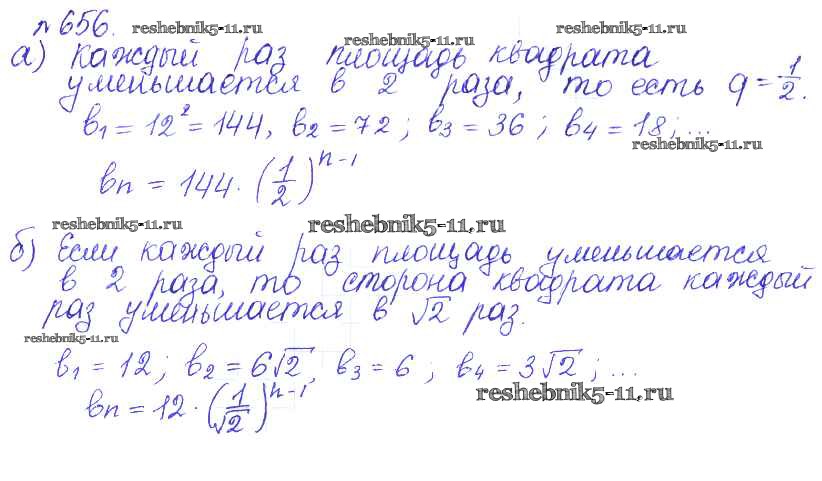 № 656.
reshebnik5-11.ru reshebnik5-11.ru reshebnik5-11.ru
а) Каждый раз площадь квадрата
уменьшается в 2 раза, то есть q = 1/2.
b₁ = 12² = 144, b₂ = 72; b₃ = 36; b₄ = 18; ...
reshebnik5-11.ru
bn = 144 · (1/2)ⁿ⁻¹
reshebnik5-11.ru reshebnik5-11.ru
б) Если каждый раз площадь уменьшается
в 2 раза, то сторона квадрата каждый
раз уменьшается в √2 раз.
reshebnik5-11.ru
b₁ = 12; b₂ = 6√2, b₃ = 6; b₄ = 3√2; ...
reshebnik5-11.ru
bn = 12 · (1/√2)ⁿ⁻¹